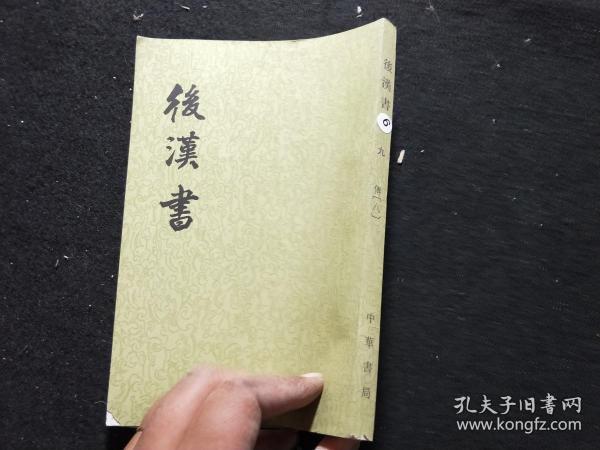 後漢書
後漢書
6
九
傳〔八〕
中華書局
孔夫子旧書网
www.kongfz.com